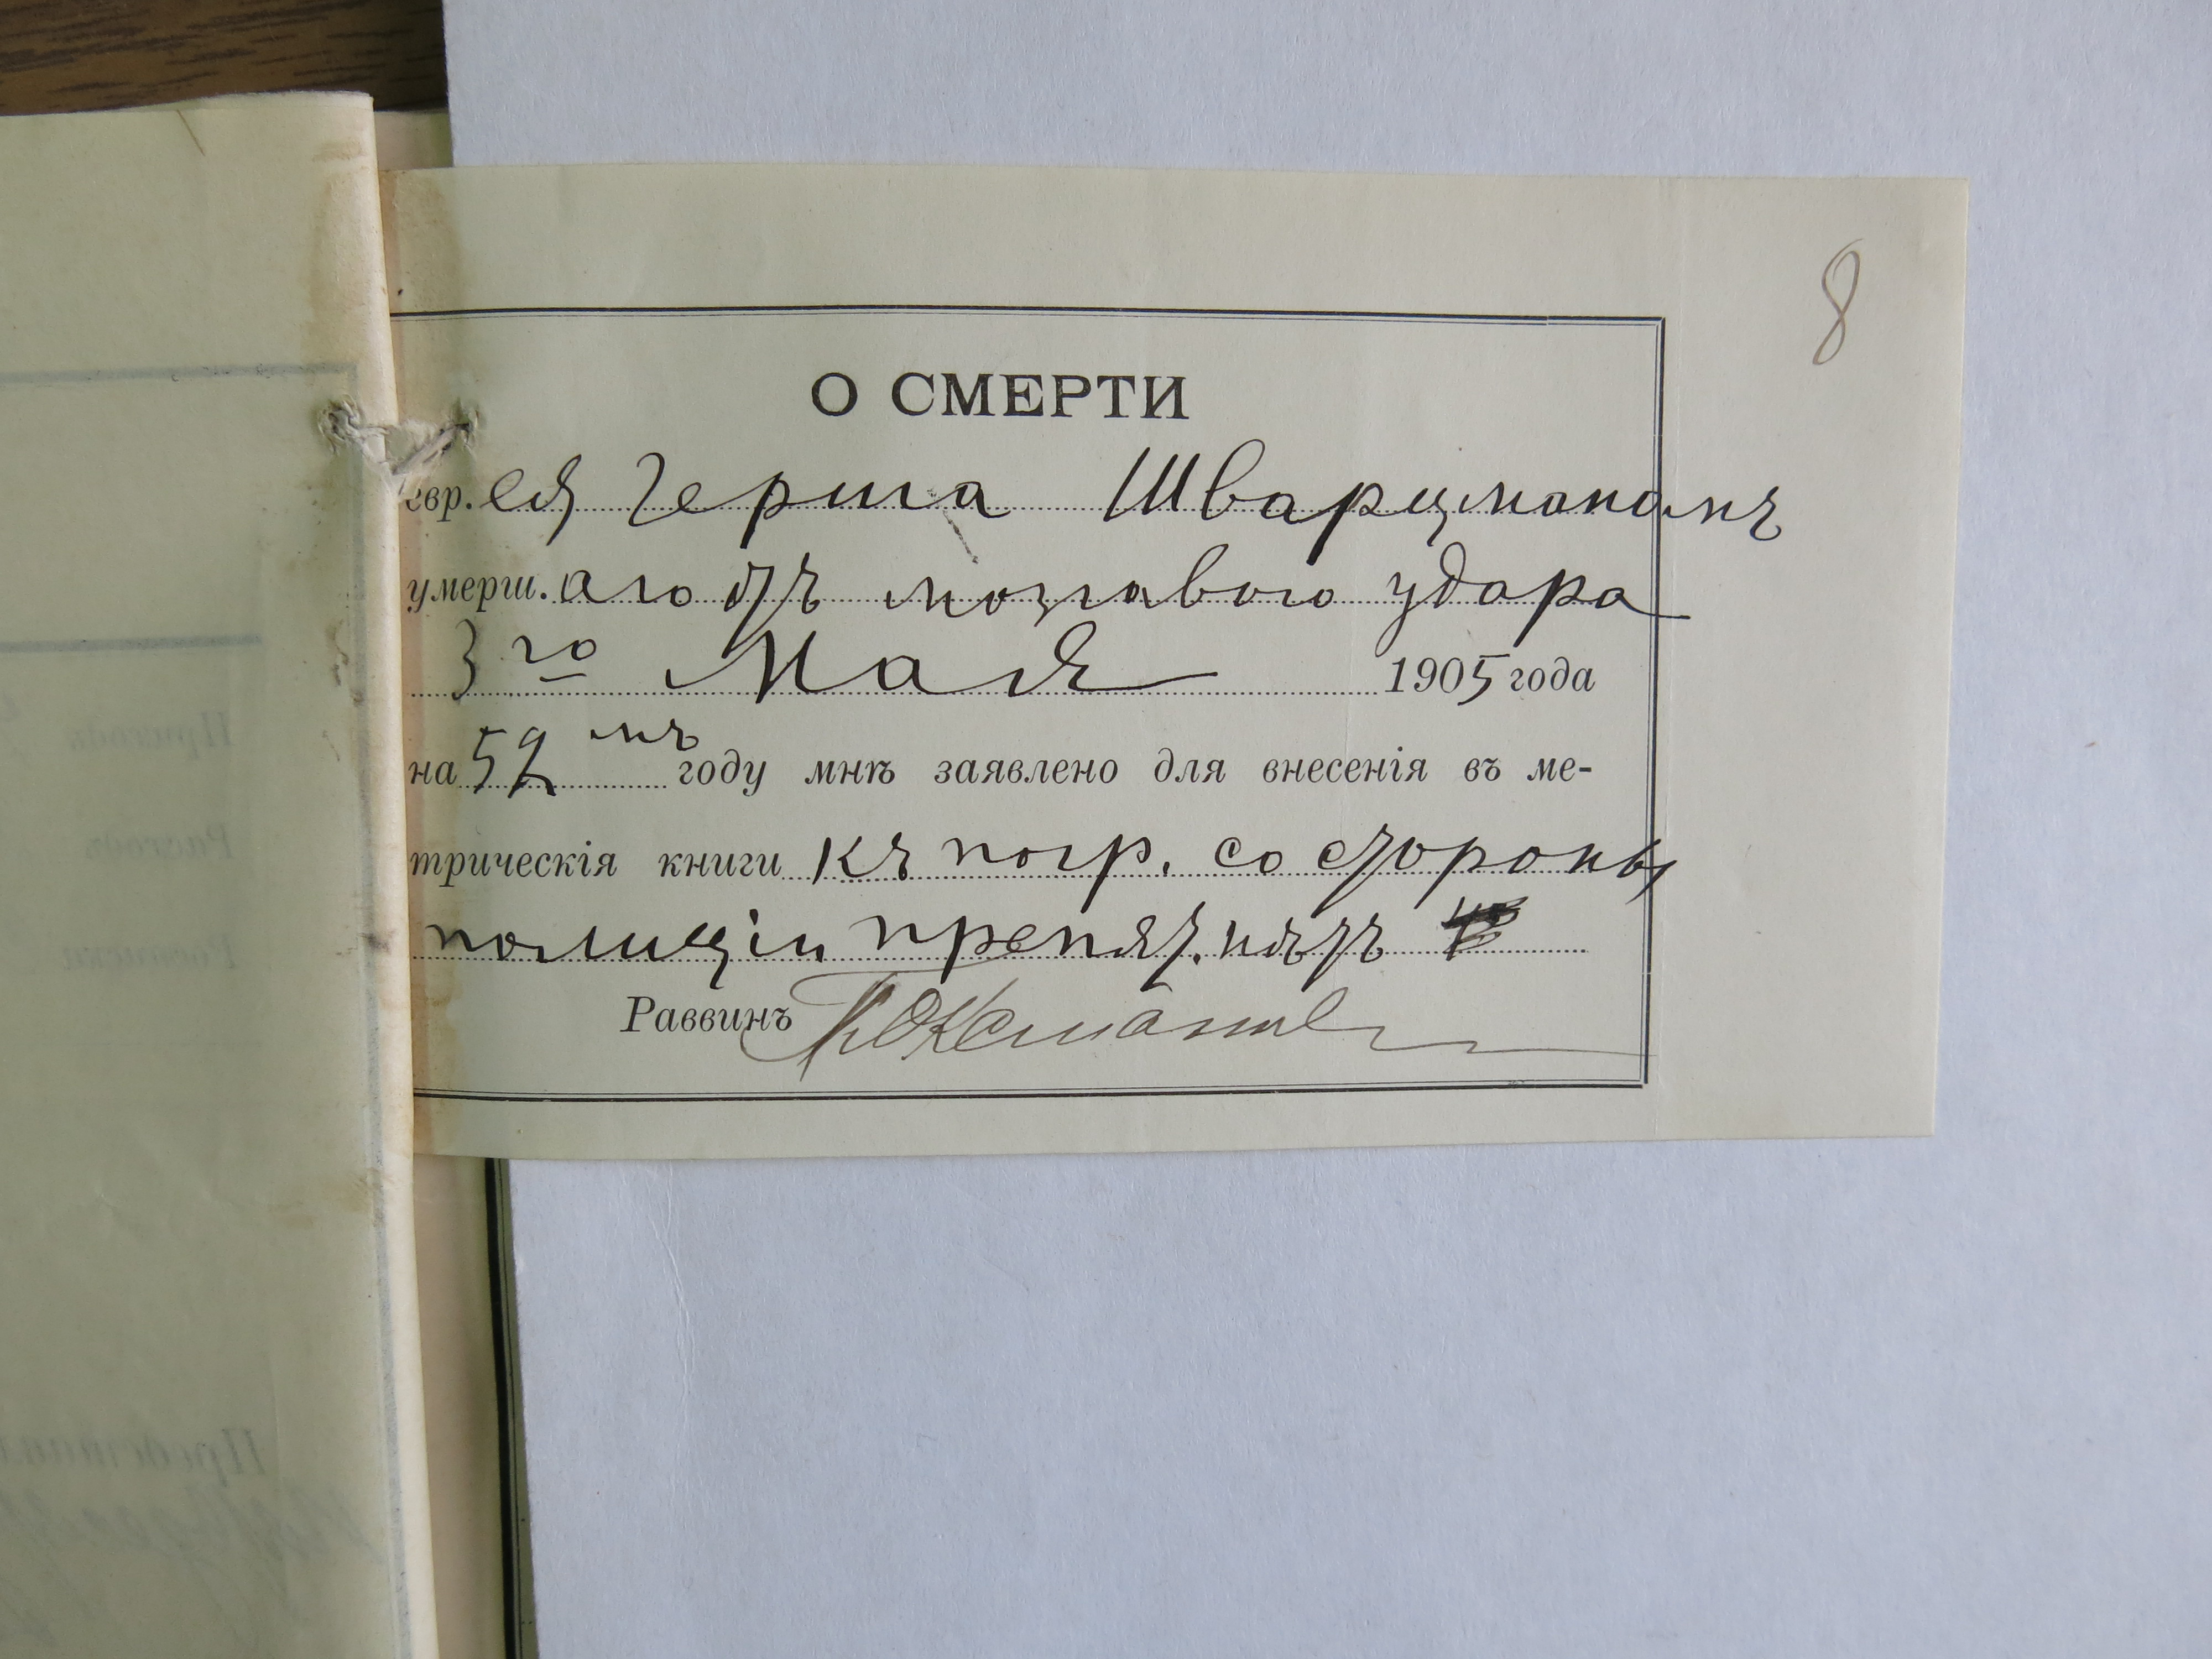 8
О СМЕРТИ
евр. ея Герша Шварцманомъ
умерш. аго отъ мозговаго удара
3го Мая 1905 года
на 52мъ году мнѣ заявлено для внесенія въ ме-
трическія книги къ погр. со стороны
полиціи препят. нѣтъ
Раввинъ